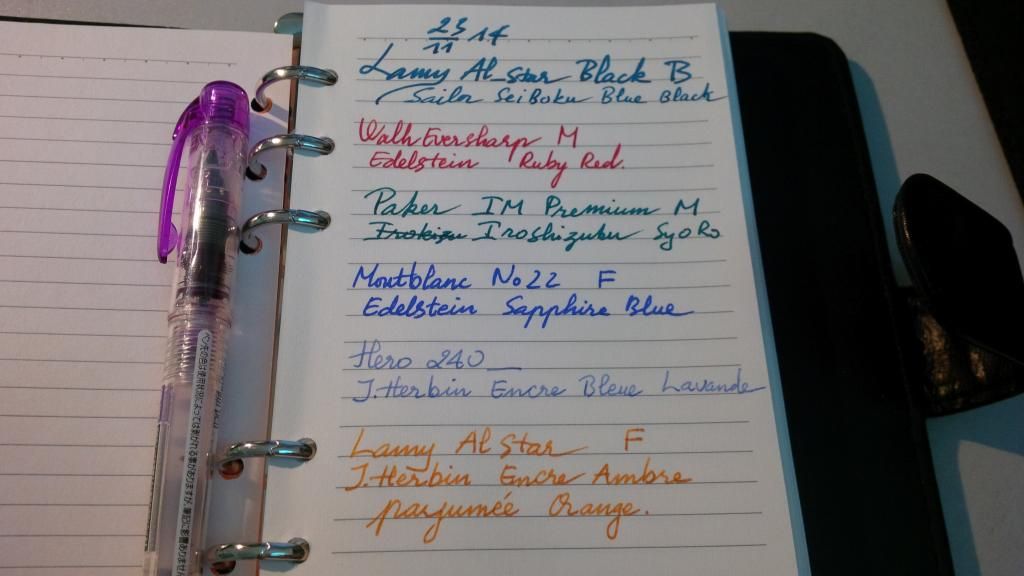 23/11 14
Lamy Al_Star Black B
Sailor SeiBoku Blue Black
Walh Eversharp M
Edelstein Ruby Red.
Paker IM Premium M
Iroshizuku SyoRo
Montblanc No22 F
Edelstein Sapphire Blue
Hero 240
J.Herbin Encre Bleue Lavande
Lamy Al Star F
J.Herbin Encre Ambre
parfumée Orange.